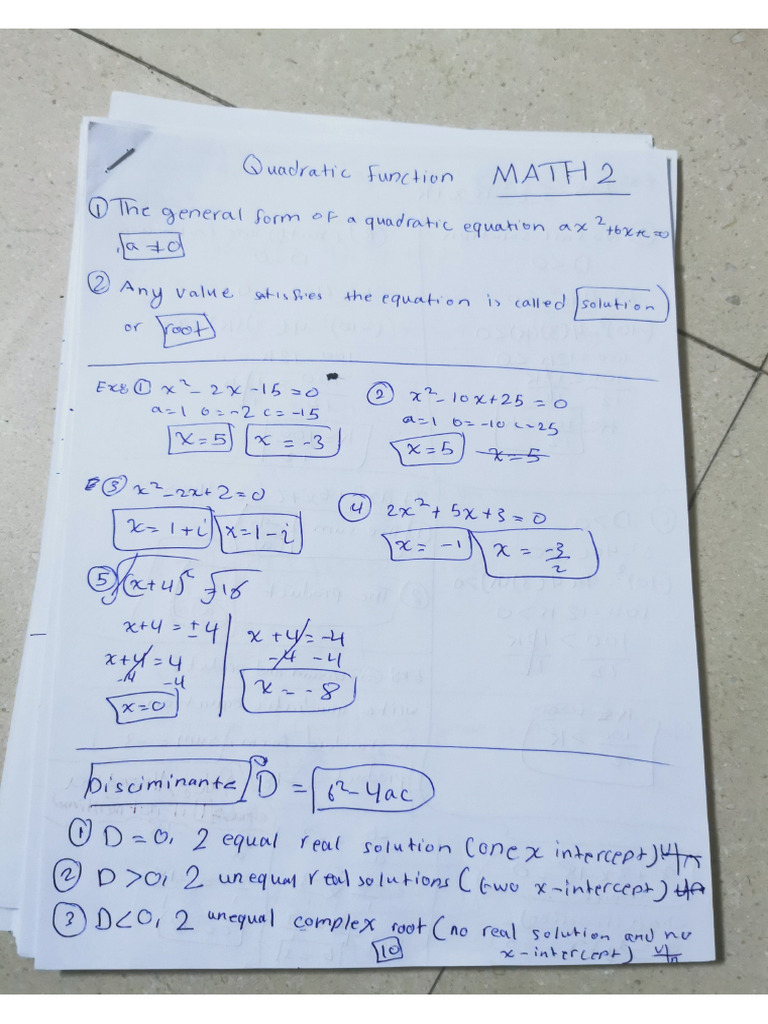 Quadratic Function MATH 2
① The general form of a quadratic equation ax²+bx+c=0
, a≠0
② Any value satisfies the equation is called solution
or root
Ex8 ① x²-2x-15=0
a=1 b=-2 c=-15
x=5 x=-3
② x²-10x+25=0
a=1 b=-10 c=25
x=5 x=5
③ x²-2x+2=0
x=1+i x=1-i
④ 2x²+5x+3=0
x=-1 x=-3/2
⑤ √(x+4)² = √16
x+4=±4
x+4=4
-4 -4
x=0
x+4=-4
-4 -4
x=-8
Disciminant D = b²-4ac
① D=0, 2 equal real solution (one x intercept)
② D>0, 2 unequal real solutions (two x-intercept)
③ D<0, 2 unequal complex root (no real solution and no
10 x-intercept)